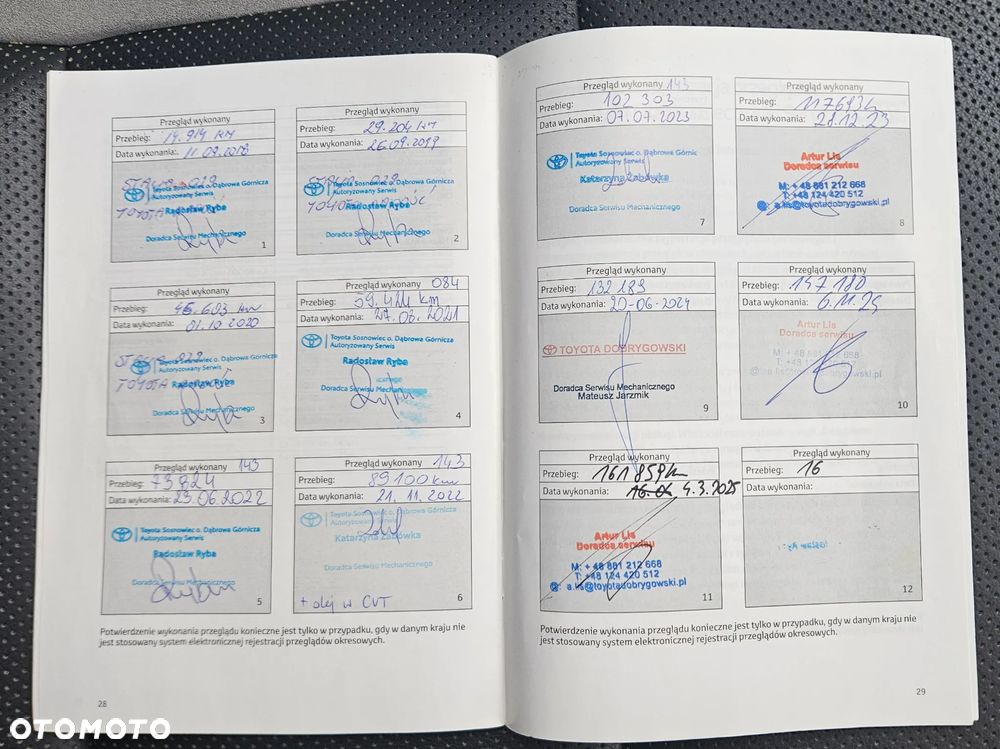 Przegląd wykonany
Przebieg: 14.914 KM
Data wykonania: 11 09.2018
Toyota Sosnowiec o. Dąbrowa Górnicza
Autoryzowany Serwis
Radosław Ryba
Doradca Serwisu Mechanicznego
1
Przegląd wykonany
Przebieg: 29.204 KM
Data wykonania: 26.09.2019
Toyota Sosnowiec o. Dąbrowa Górnicza
Autoryzowany Serwis
Radosław Ryba
Doradca Serwisu Mechanicznego
2
Przegląd wykonany
Przebieg: 45.603 KM
Data wykonania: 01.10 2020
Toyota Sosnowiec o. Dąbrowa Górnicza
Autoryzowany Serwis
Radosław Ryba
Doradca Serwisu Mechanicznego
3
Przegląd wykonany 084
Przebieg: 59.424 km
Data wykonania: 27.08.2021
Toyota Sosnowiec o. Dąbrowa Górnicza
Autoryzowany Serwis
Radosław Ryba
Doradca Serwisu
4
Przegląd wykonany 143
Przebieg: 73824
Data wykonania: 23.06.2022
Toyota Sosnowiec o. Dąbrowa Górnicza
Autoryzowany Serwis
Radosław Ryba
Doradca Serwisu Mechanicznego
5
Przegląd wykonany 143
Przebieg: 89100 km
Data wykonania: 21. 11. 2022
Toyota Sosnowiec o. Dąbrowa Górnicza
Autoryzowany Serwis
Katarzyna Zabówka
Doradca Serwisu Mechanicznego
+ olej w CVT
6
Potwierdzenie wykonania przeglądu konieczne jest tylko w przypadku, gdy w danym kraju nie
jest stosowany system elektronicznej rejestracji przeglądów okresowych.
28
Przegląd wykonany 143
Przebieg: 102 303
Data wykonania: 07.07.2023
Toyota Sosnowiec o. Dąbrowa Górnic
Autoryzowany Serwis
Katarzyna Zabówka
Doradca Serwisu Mechanicznego
7
Przegląd wykonany
Przebieg:
Data wykonania: 28.12.23
Artur Lis
Doradca serwisu
M: + 48 881 212 668
T: +48 124 420 512
@: a.lis@toyotadobrygowski.pl
8
Przegląd wykonany
Przebieg: 132 189
Data wykonania: 20-06-2024
TOYOTA DOBRYGOWSKI
Doradca Serwisu Mechanicznego
Mateusz Jarzmik
9
Przegląd wykonany
Przebieg: 147 180
Data wykonania: 6.11.24
Artur Lis
Doradca serwisu
M: + 48 881 212 668
10
Przegląd wykonany
Przebieg: 161 859 km
Data wykonania: 4.3.2025
Artur Lis
Doradca serwisu
M: + 48 881 212 668
T: +48 124 420 512
@: a.lis@toyotadobrygowski.pl
11
Przegląd wykonany
Przebieg: 16
Data wykonania:
12
Potwierdzenie wykonania przeglądu konieczne jest tylko w przypadku, gdy w danym kraju nie
jest stosowany system elektronicznej rejestracji przeglądów okresowych.
29
OTOMOTO